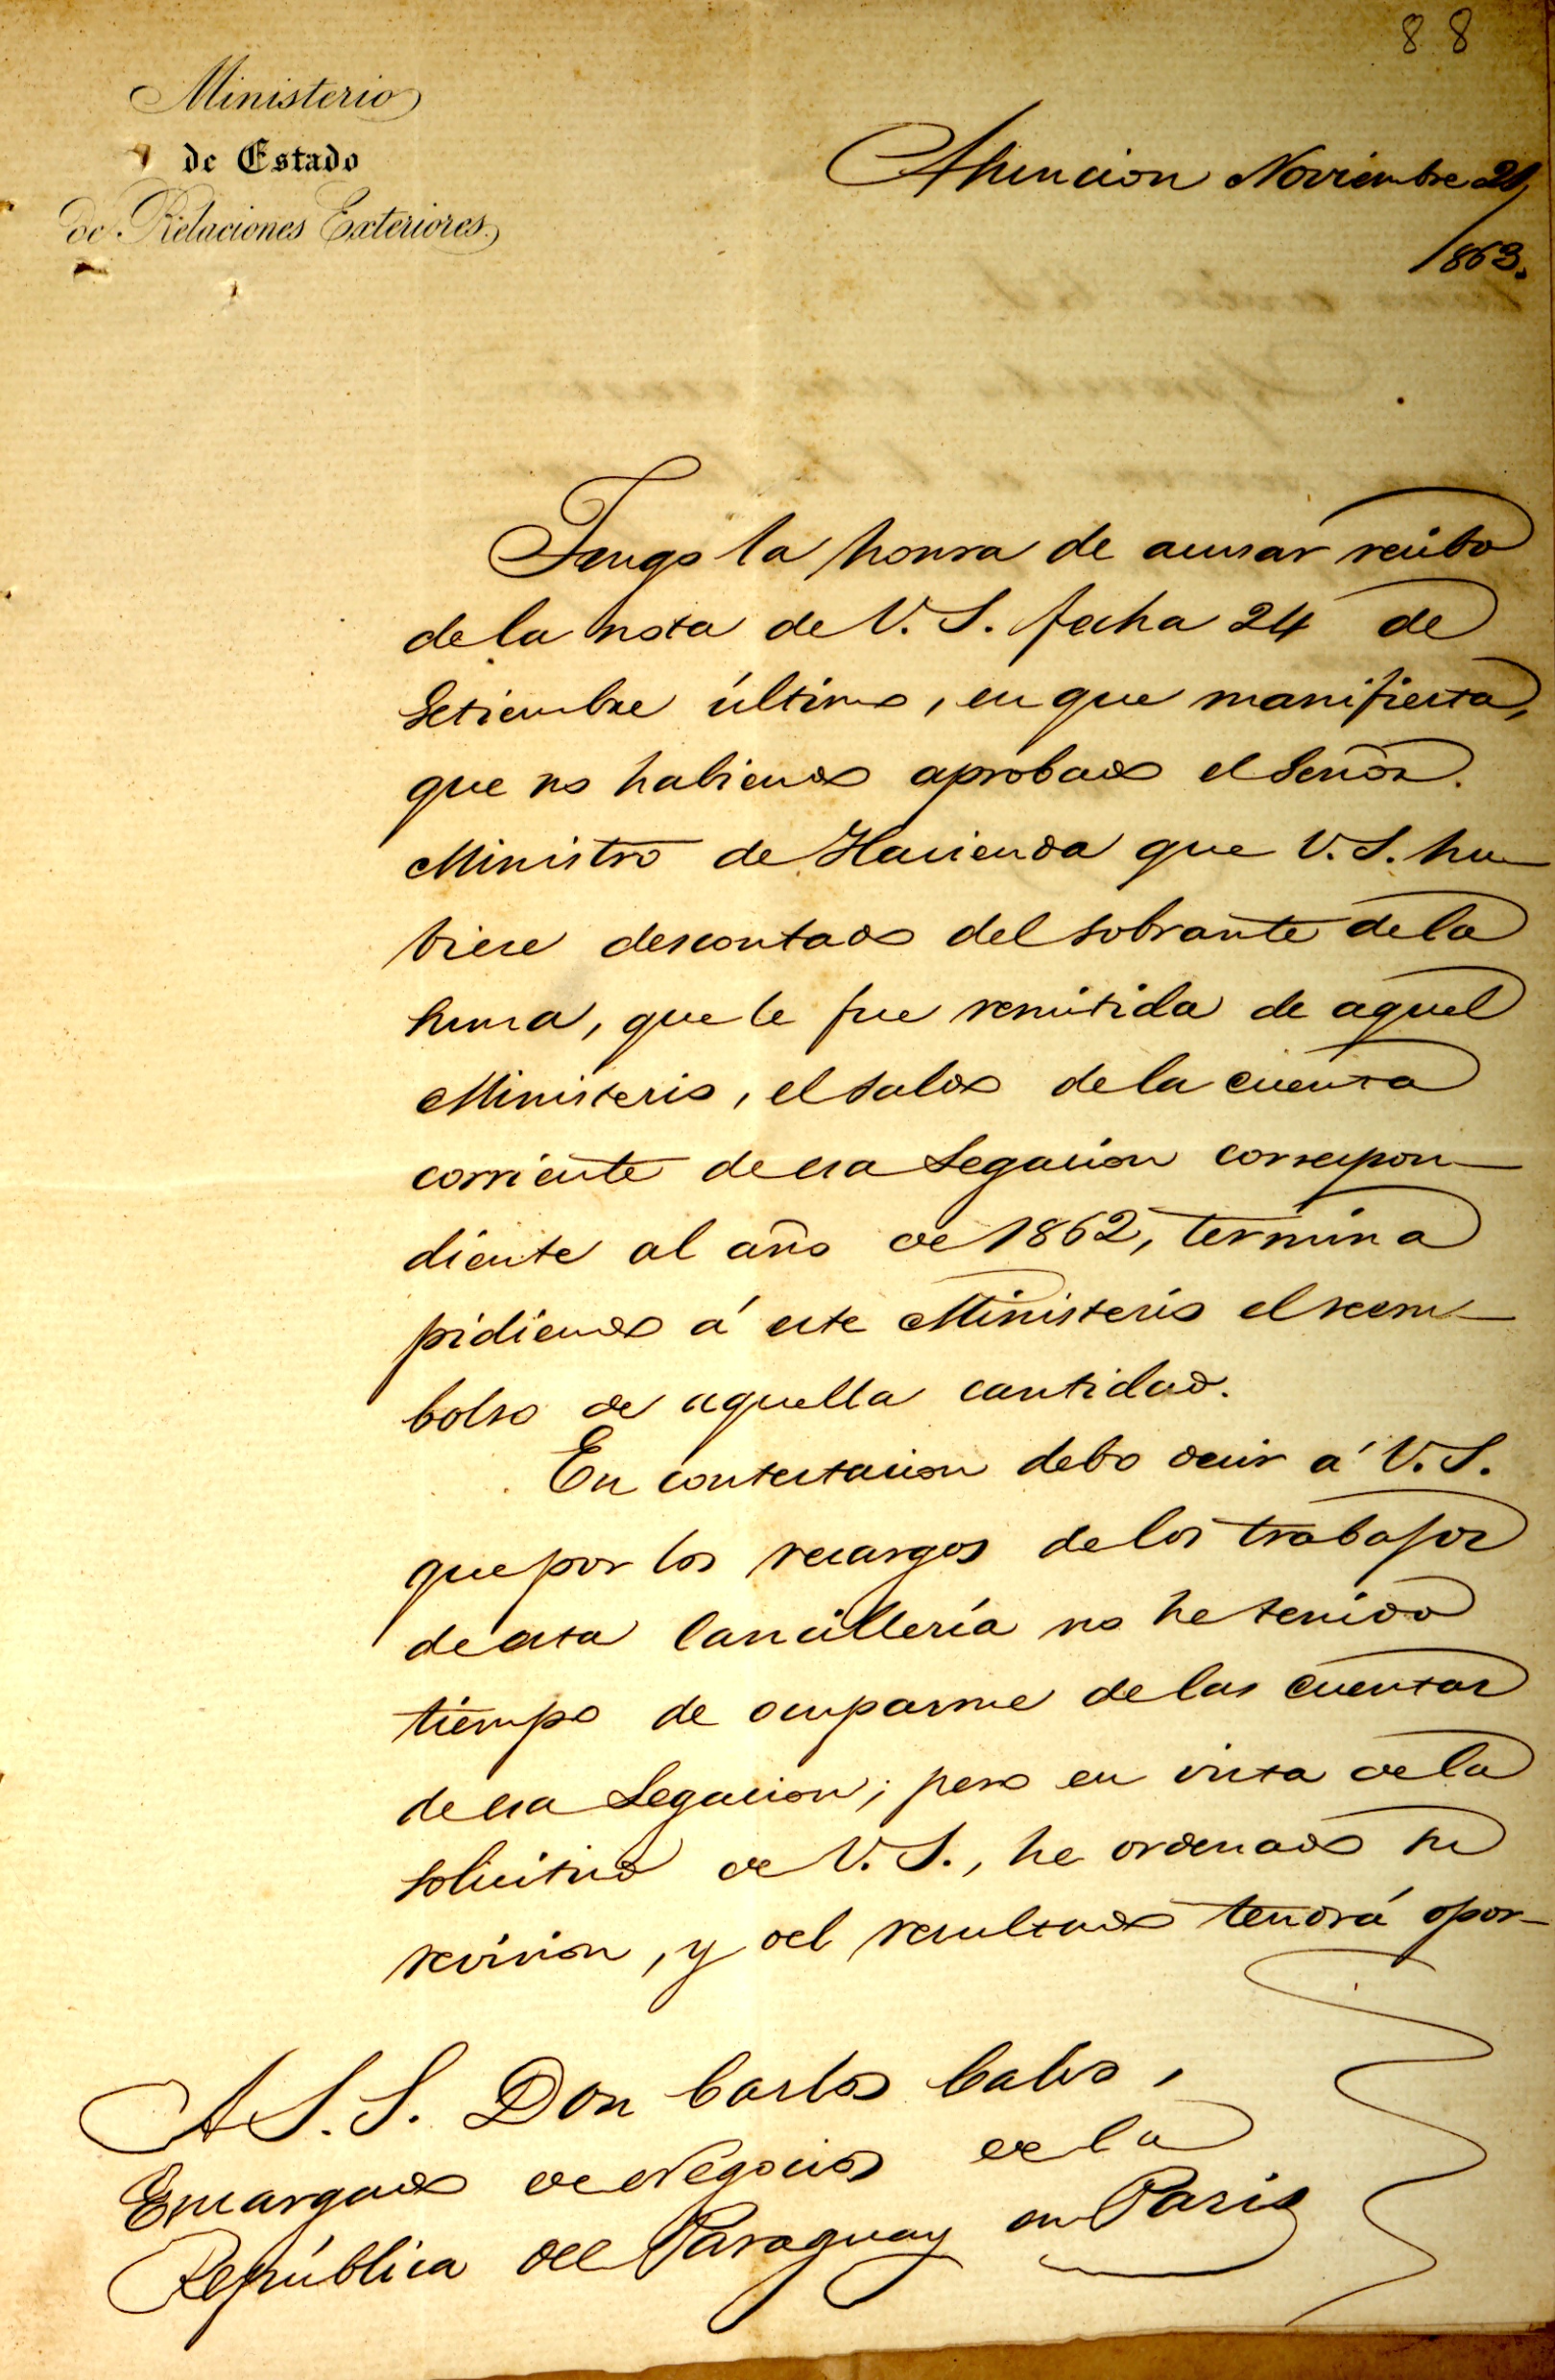 88
Ministerio
de Estado
de Relaciones Exteriores.
Asuncion Noviembre 21
/863.
Tengo la honra de acusar recibo
de la nota de V. S. fecha 24 de
Setiembre último, en que manifiesta,
que no habiendo aprobado el Señor
Ministro de Hacienda que V. S. hu-
biese descontado del sobrante de la
suma, que le fue remitida de aquel
Ministerio, el saldo de la cuenta
corriente de esa Legacion correspon-
diente al año de 1862, termina
pidiendo á este Ministerio el reem-
bolso de aquella cantidad.
En contestacion debo decir á V. S.
que por los recargos de los trabajos
de esta Cancillería no he tenido
tiempo de ocuparme de las cuentas
de esa Legacion; pero en vista de la
solicitud de V. S., he ordenado su
revision, y del resultado tendrá opor-
A S. S. Don Carlos Calvo,
Encargado de Negocios de la
República del Paraguay en Paris